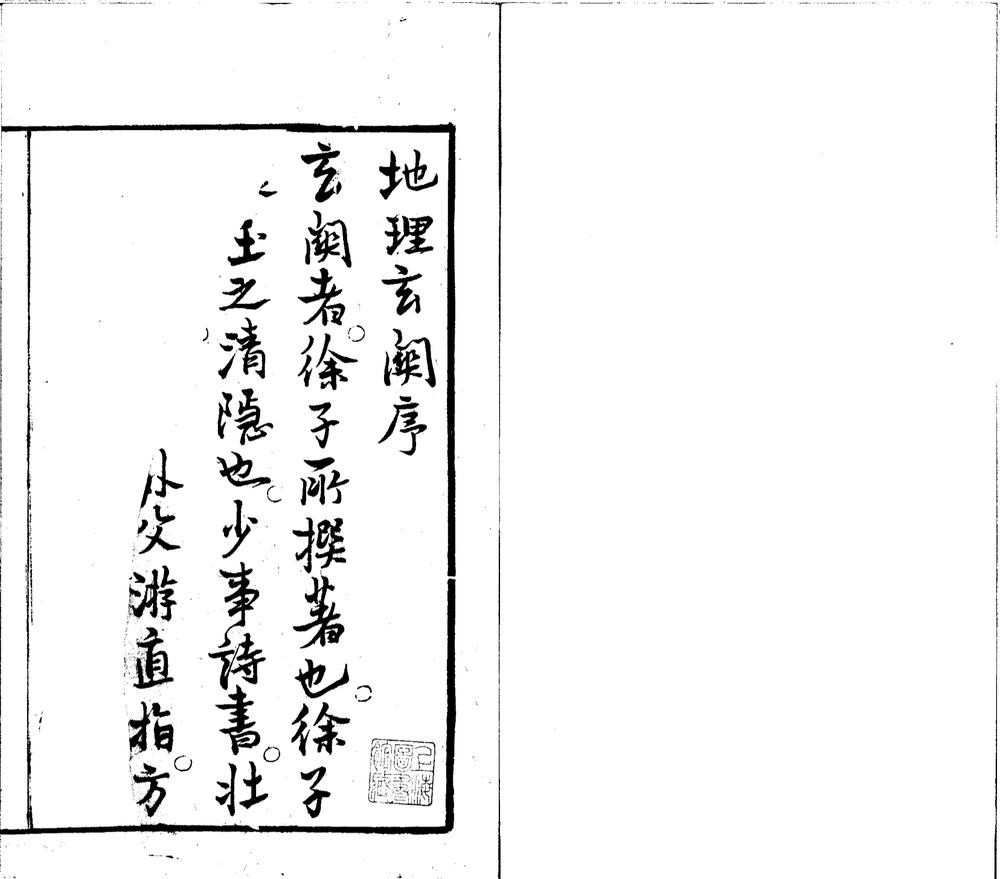 地理玄関序
玄関者。徐子所撰著也。徐子
玉之清隱也。少事詩書。壯
游直指。方
上海圖書館藏